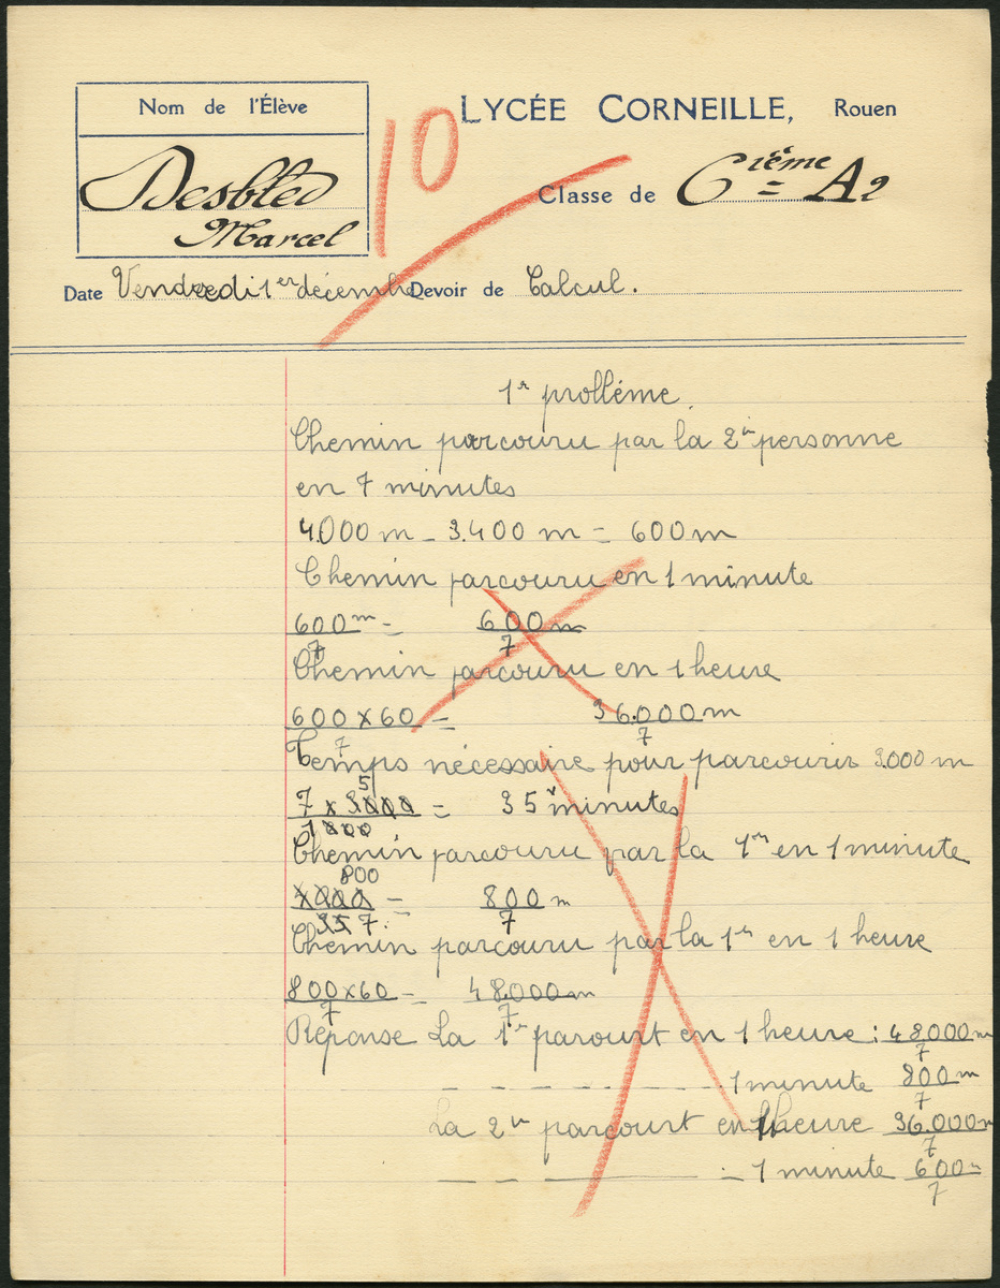 Nom de l'Élève
LYCÉE CORNEILLE, Rouen
10
Desbled
Marcel
Classe de 6ième A2
Date Vendredi 1er décembre Devoir de Calcul.
1r problème
Chemin parcouru par la 2me personne
en 7 minutes
4000 m - 3.400 m = 600 m
Chemin parcouru en 1 minute
600m/7 = 600m/7
Chemin parcouru en 1 heure
600 x 60/7 = 36.000 m/7
Temps nécessaire pour parcourir 3.000 m
7 x 3000/1800 5 = 35 minutes
Chemin parcouru par la 1re en 1 minute
800
4000/35 7 = 800 m/7
Chemin parcouru par la 1re en 1 heure
800 x 60/7 = 48.000 m/7
Réponse La 1re parcourt en 1 heure : 48000 m/7
1 minute 800 m/7
La 2me parcourt en 1 heure 36.000 m/7
1 minute 600 m/7